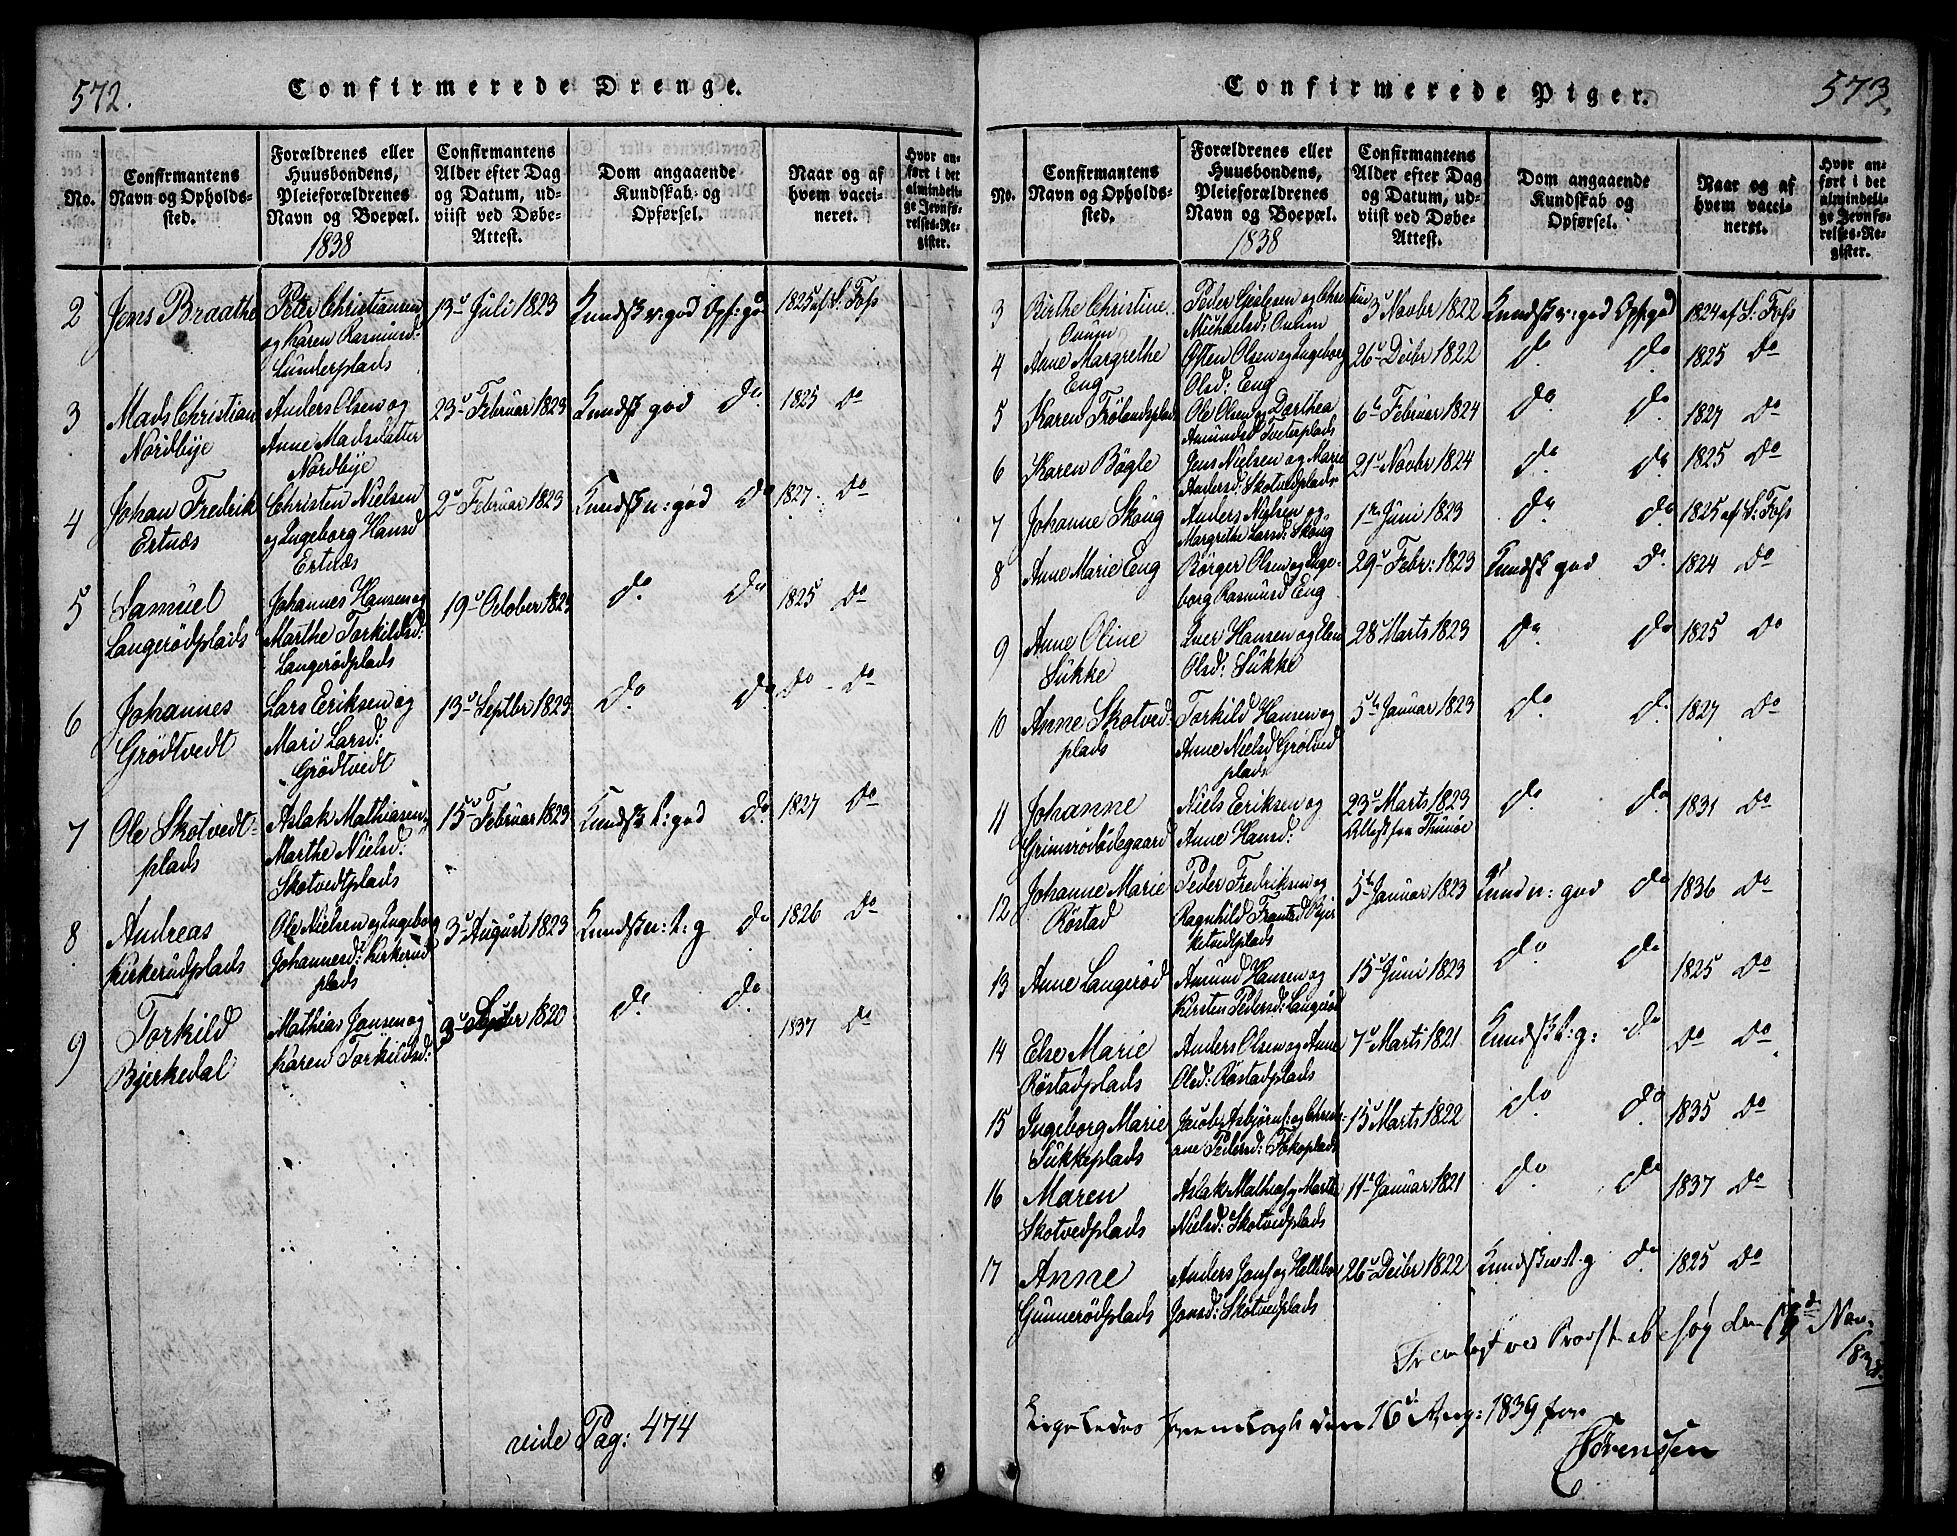 572.
Confirmerede Drenge.
No.
Confirmantens
Navn og Opholds-
sted.
Forældrenes eller
Huusbondens,
Pleieforældrenes
Navn og Boepæl.
1838
Confirmantens
Alder efter Dag
og Datum, ud-
viist ved Døbe-
Attest.
Dom angaaende
Kundskab og
Opførsel.
Naar og af
hvem vacci-
neret.
Hvor an-
ført i det
almindeli-
ge Jevnfø-
relses-Re-
gister.
2 Jens Braathe
Peter Christiansen
og Karen Rasmusd:
Lunderplads
13de Juli 1823
Kundsk v: god Opf: god
1825 af L. Foss
3 Mads Christian
Nordbye
Anders Olsen og
Anne Madsdatter
Nordbye
23de Februar 1823
Kundsk god Do
1825 Do
4 Johan Fredrik
Ertnæs
Christen Nielsen
og Ingeborg Hansd
Ertnæs
2den Februar 1823
Kundsk n: god Do
1827 Do
5 Samuel
Langerödplads
Johannes Hansen og
Marthe Torkildsd:
Langerödplads
19de October 1823
Do Do
1825 Do
6 Johannes
Grödtvedt
Lars Eriksen og
Mari Larsd:
Grödtvedt
13de Septbr 1823
Do Do
Do Do
7 Ole Skotvedt-
plads
Aslak Mathiasen og
Marthe Nielsd:
Skotvedtplads
15de Februar 1823
Kundsk t: god Do
1827 Do
8 Andreas
Kirkerudplads
Ole Nielsen og Ingeborg
Johannesd: Kirkerud
plads
3de August 1823
Kundsk n: t: g Do
1826 Do
9 Torkild
Bjerkedal
Mathias Jansen og
Karen Torkildsd:
1820
Do Do
1837 Do
vide Pag: 474
573.
Confirmerede Piger.
No.
Confirmantens
Navn og Opholds-
sted.
Forældrenes eller
Huusbondens,
Pleieforældrenes
Navn og Boepæl.
1838
Confirmantens
Alder efter Dag
og Datum, ud-
viist ved Døbe-
Attest.
Dom angaaende
Kundskab og
Opførsel.
Naar og af
hvem vacci-
neret.
Hvor an-
ført i det
almindeli-
ge Jevnfø-
relses-Re-
gister.
3 Birthe Christine
Onum
Peder
Michaelsd: Onum
3de Novbr 1822
Kundsk v: god Opf: god
1824 af L: Foss
4 Anne Margrethe
Eng
Osten Olsen og Ingeborg
Olsd: Eng
26de Decbr 1822
Do Do
1825 Do
5 Karen Frölandsplad
Ole Olsen og Dorthea
Amundsd Tveterplads
6te Februar 1824
Do Do
1827 Do
6 Karen Bögle
Jens Nielsen og Marie
Andersd: Skotvedplads
21de Novbr 1824
Do Do
1825 Do
7 Johanne Skoug
Anders Nielsen og
Margrethe Larsd: Skoug
1ste Juni 1823
Do Do
1825 af L: Foss
8 Anne Marie Eng
Börger Olsen og Inge-
borg Rasmusd Eng
29de Febr: 1823
Kundsk god Do
1824 Do
9 Anne Oline
Sukke
Iver Hansen og Elen
Olsd: Sukke
28de Marts 1823
Do Do
1825 Do
10 Anne Skotved-
plads
Torkild Hansen og
Anne Nielsd Grötved
plads
5te Januar 1823
Do Do
1827 Do
11 Johanne
Grimsrödödegaard
Niels Eriksen og
Anne Hansd:
23de Marts 1823
Attest fra Thunöe
Do Do
1831 Do
12 Johanne Marie
Röstad
Peder Fredriksen og
Ragnhild Frantsd Vejer
ketvedtplads
5te Januar 1823
Kund n: god Do
1836 Do
13 Anne Langeröd
Amund Hansen og
Kirsten Pedersd: Langeröd
15de Juni 1823
Do Do
1825 Do
14 Else Marie
Röstadplads
Anders Olsen og Anne
Olsd: Röstadplads
7de Marts 1821
Kundsk t: g: Do
Do Do
15 Ingeborg Marie
Sukkeplads
Jacob Asbjörns: og Christi-
ane Pedersd: Fokoplads
15de Marts 1822
Do Do
1835 Do
16 Maren
Skotvedplads
Aslak Mathias: og Marthe
Nielsd: Skotvedplads
11te Januar 1821
Do Do
1837 Do
17 Anne
Gunnerödplads
Anders Jons: og Hellebor
Jonsd: Skotvedplads
26de Decbr 1822
Kundsk n: t: g Do
1825 Do
Fremlagt ved Provstebesög den 13de Nov:
1838.
Ligeledes fremlagt den 16de Aug: 1839 for
Sörenssen